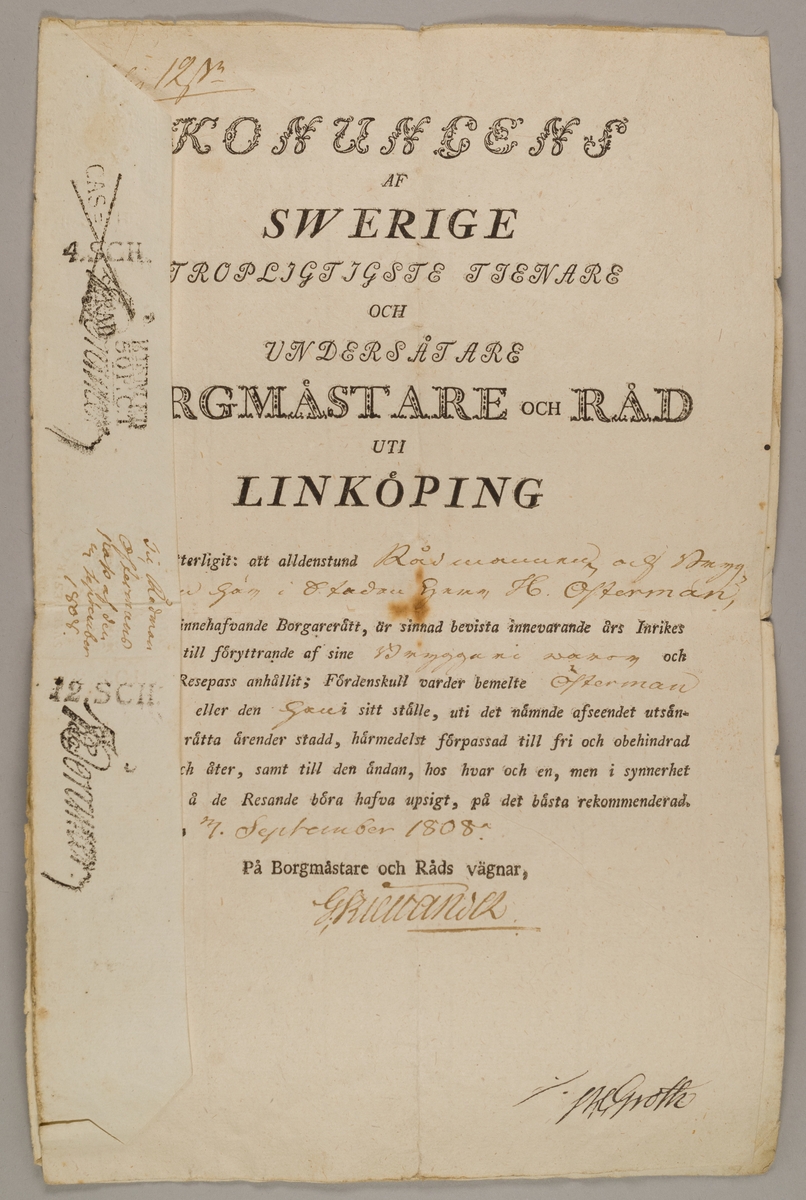 12
KONUNGENS
AF
SWERIGE
TROPLIGTIGSTE TJENARE
OCH
UNDERSÅTARE
RGMÅSTARE OCH RÅD
UTI
LINKÖPING
terligit: att alldenstund Rådmannen och Brygg
här i Staden Herr H. Österman,
innehafvande Borgarerätt, är sinnad bevista innevarande års Inrikes
till föryttrande af sine Bryggeri varor och
Resepass anhållit; Fördenskull varder bemelte Österman
eller den Han i sitt ställe, uti det nämnde afseendet utsän-
råtta ärender stadd, härmedelst förpassad till fri och obehindrad
ch åter, samt till den ändan, hos hvar och en, men i synnerhet
å de Resande böra hafva upsigt, på det bästa rekommenderad.
7. September 1808.
På Borgmästare och Råds vägnar,
Groth
4. SCH.
Rådman
Östermans
Pass af den
September
1808.
12. SCH